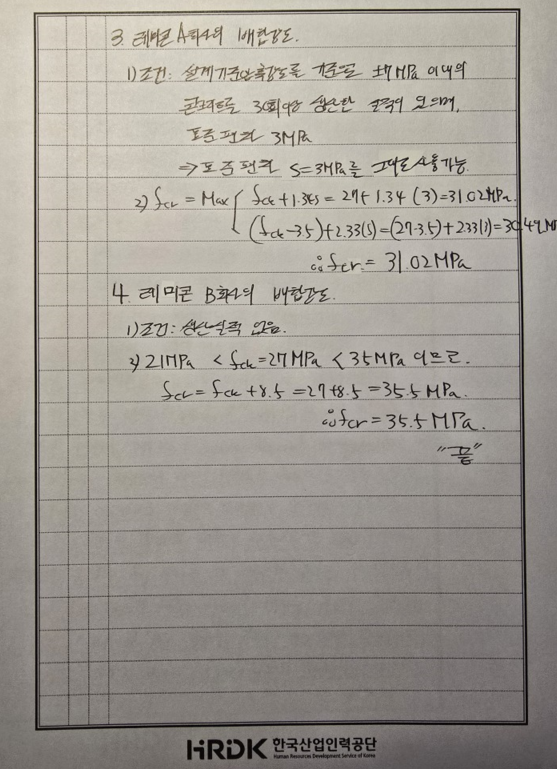 3. 레미콘 A회사의 배합강도.
1) 조건: 설계기준압축강도를 기준으로 ±7MPa 이내의
콘크리트를 30회이상 생산한 실적이 있으며,
표준편차 3MPa
⇒ 표준편차 S=3MPa를 그대로 사용가능.
2) fcr = Max { fck+1.34s = 27+1.34(3)=31.02MPa.
(fck-3.5)+2.33(s)=(27-3.5)+2.33(3)=30.49MPa
∴fcr = 31.02MPa
4. 레미콘 B회사의 배합강도.
1) 조건: 생산실적 없음.
2) 21MPa < fck=27MPa < 35MPa 이므로.
fcr = fck+8.5 =27+8.5 =35.5MPa.
∴fcr = 35.5MPa.
"끝"
HRDK 한국산업인력공단
Human Resources Development Service of Korea